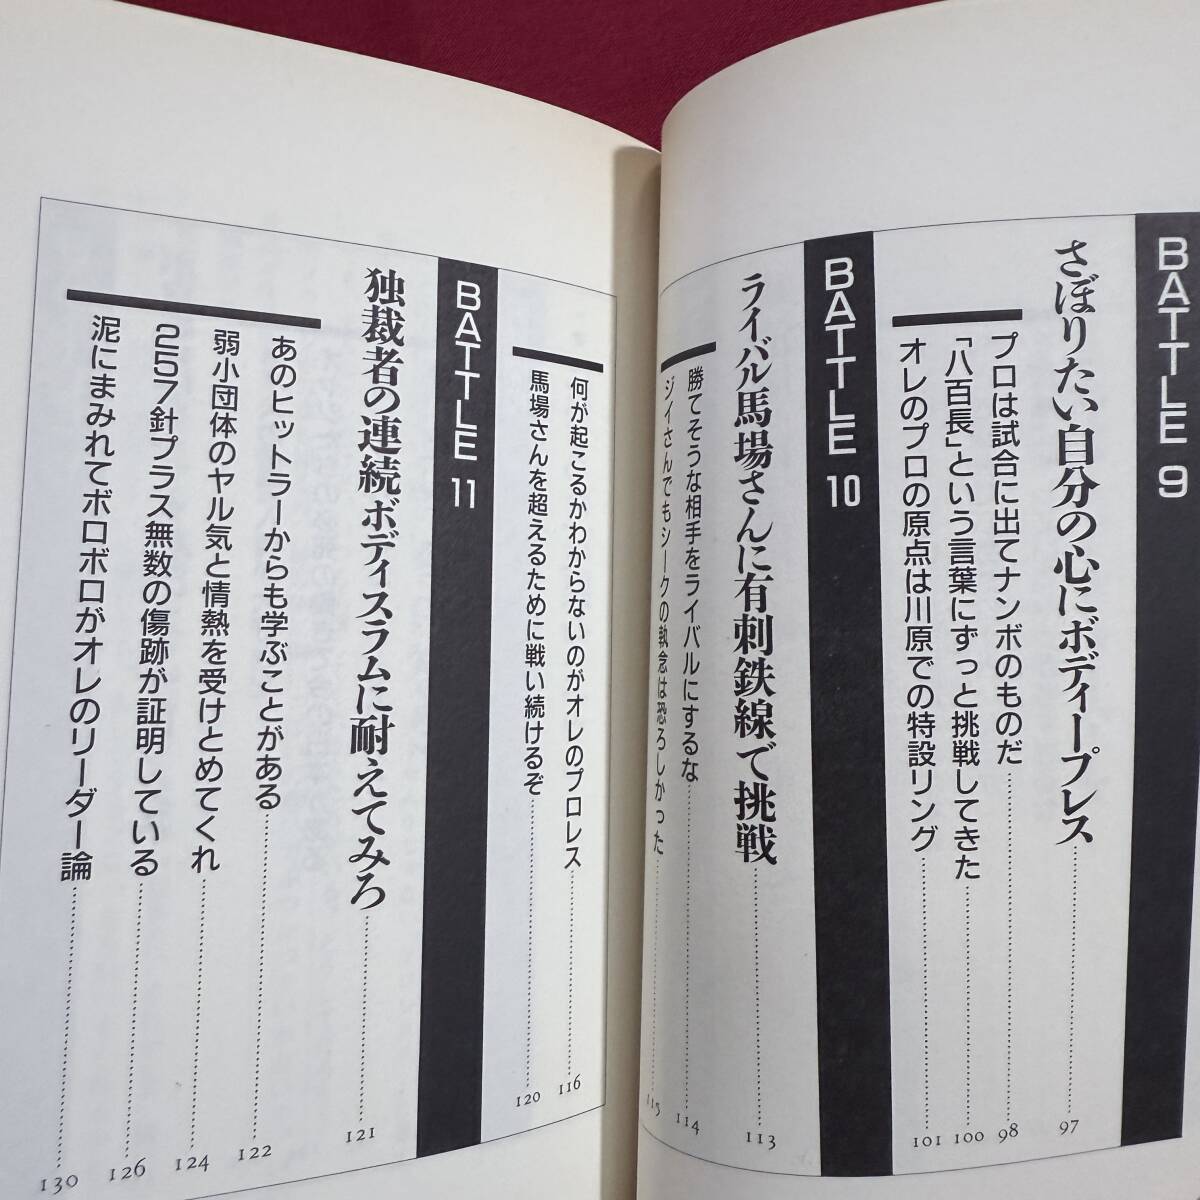 BATTLE 9
さぼりたい自分の心にボディープレス……97
プロは試合に出てナンボのものだ……98
「八百長」という言葉にずっと挑戦してきた……100
オレのプロの原点は川原での特設リング……101
BATTLE 10
ライバル馬場さんに有刺鉄線で挑戦……113
勝てそうな相手をライバルにするな……114
ジイさんでもシークの執念は恐ろしかった……115
何が起こるかわからないのがオレのプロレス……116
馬場さんを超えるために戦い続けるぞ……120
BATTLE 11
独裁者の連続ボディスラムに耐えてみろ……121
あのヒットラーからも学ぶことがある……122
弱小団体のヤル気と情熱を受けとめてくれ……124
257針プラス無数の傷跡が証明している……126
泥にまみれてボロボロがオレのリーダー論……130